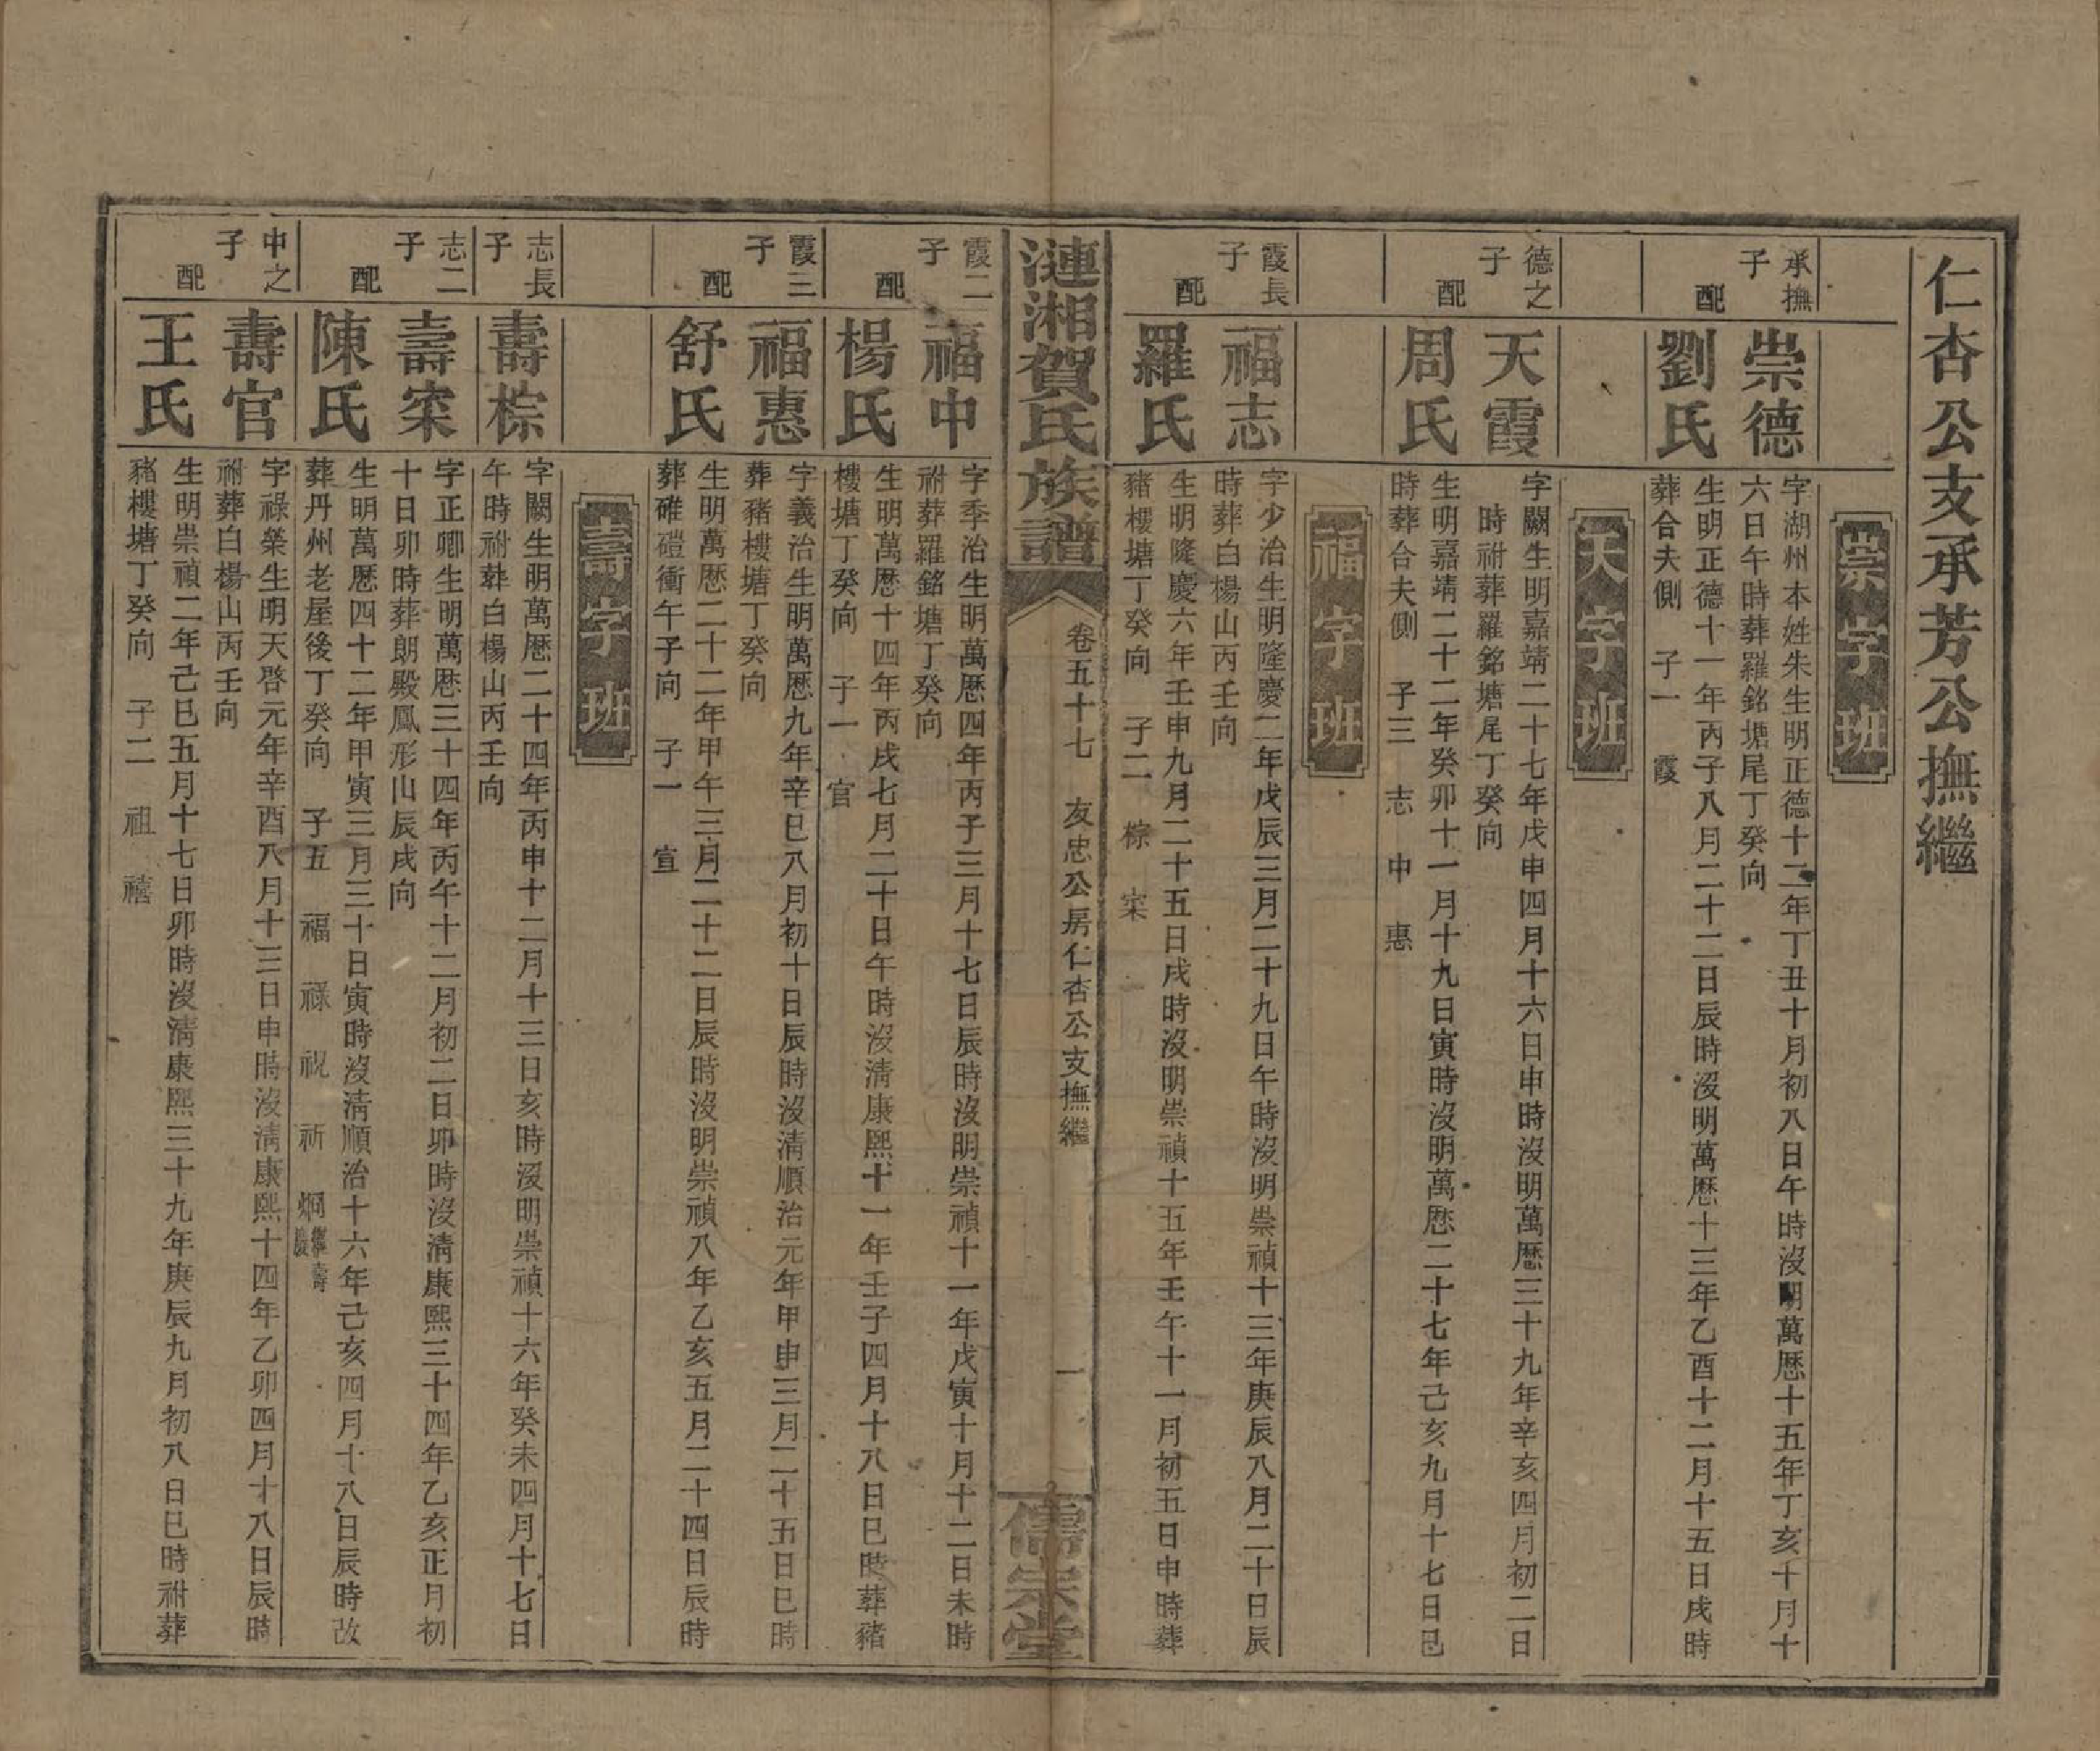 仁杏公支承芳公撫繼
崇字班
承撫子
崇德
字湖州本姓朱生明正德十二年丁丑十月初八日午時沒明萬曆十五年丁亥十月十
六日午時葬羅銘塘尾丁癸向
配
劉氏
生明正德十一年丙子八月二十二日辰時沒明萬曆十三年乙酉十二月十五日戌時
葬合夫側　子一　霞
天字班
德之子
天霞
字關生明嘉靖二十七年戊申四月十六日申時沒明萬曆三十九年辛亥四月初二日
時祔葬羅銘塘尾丁癸向
配
周氏
生明嘉靖二十二年癸卯十一月十九日寅時沒明萬曆二十七年己亥九月十七日巳
時葬合夫側　子三　志　中　惠
福字班
霞長子
福志
字少治生明隆慶二年戊辰三月二十九日午時沒明崇禎十三年庚辰八月二十日辰
時葬白楊山丙壬向
配
羅氏
生明隆慶六年壬申九月二十五日戌時沒明崇禎十五年壬午十一月初五日申時葬
豬樓塘丁癸向　子二　棕　寀
漣湘賀氏族譜
卷五十七　友忠公房仁杏公支撫繼
一
儒宗堂
霞二子
福中
字季治生明萬曆四年丙子三月十七日辰時沒明崇禎十一年戊寅十月十二日未時
祔葬羅銘塘丁癸向
配
楊氏
生明萬曆十四年丙戌七月二十日午時沒清康熙十一年壬子四月十八日巳時葬豬
樓塘丁癸向　子一　官
霞三子
福惠
字義治生明萬曆九年辛巳八月初十日辰時沒清順治元年甲申三月二十五日巳時
葬豬樓塘丁癸向
配
舒氏
生明萬曆二十二年甲午三月二十二日辰時沒明崇禎八年乙亥五月二十四日辰時
葬碓磑衝午子向　子一　宣
壽字班
志長子
壽棕
字關生明萬曆二十四年丙申十二月十三日亥時沒明崇禎十六年癸未四月十七日
午時祔葬白楊山丙壬向
志二子
壽寀
字正卿生明萬曆三十四年丙午十二月初二日卯時沒清康熙三十四年乙亥正月初
十日卯時葬朗殿鳳形山辰戌向
配
陳氏
生明萬曆四十二年甲寅三月三十日寅時沒清順治十六年己亥四月十八日辰時改
葬丹州老屋後丁癸向　子五　福　祿　祝　祈　烱
中之子
壽官
字祿榮生明天啓元年辛酉八月十三日申時沒清康熙十四年乙卯四月十八日辰時
祔葬白楊山丙壬向
配
王氏
生明崇禎二年己巳五月十七日卯時沒清康熙三十九年庚辰九月初八日巳時祔葬
豬樓塘丁癸向　子二　祖　禧